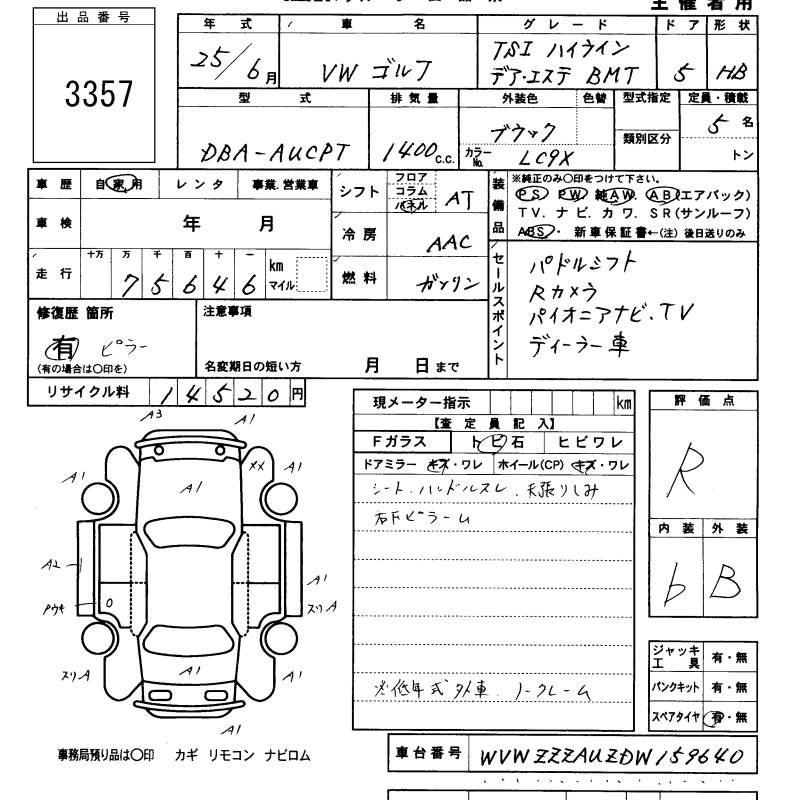 主催者用
出品番号
3357
年式 車名 グレード ドア 形状
25/6月 VW ゴルフ TSI ハイライン デア・エステ BMT 5 HB
型式 排気量 外装色 色替 型式指定 定員・積載
DBA-AUCPT 1400c.c. ブラック 類別区分 5名
カラーNo. LC9X トン
車歴 自家用 レンタ 事業.営業車
車検 年 月
走行 十万 万 千 百 十 一
75646 km マイル
シフト フロア コラム パネル AT
冷房 AAC
燃料 ガソリン
装備品 ※純正のみ○印をつけて下さい。
PS PW 純AW. AB(エアバック)
TV. ナビ. カワ. SR(サンルーフ)
ABS ・ 新車保証書←(注) 後日送りのみ
セールスポイント
パドルシフト
Rカメラ
パイオニアナビ.TV
ディーラー車
修復歴 箇所
有 ピラー
(有の場合は○印を)
注意事項
名変期日の短い方 月 日まで
リサイクル料 14520円
現メーター指示 km
【査定員記入】
Fガラス トビ石 ヒビワレ
ドアミラー キズ・ワレ ホイール(CP) キズ・ワレ
シート.ハンドルスレ.天張りしみ
右下ピラーム
※低年式外車.ノークレーム
評価点
R
内装 外装
b B
ジャッキ工具 有・無
パンクキット 有・無
スペアタイヤ 有・無
A3 A1
A1 A1 ×× A1
A2 A1
Pウキ スリA
スリA A1 A1
A1
事務局預り品は○印 カギ リモコン ナビロム
車台番号 WVWZZZAUZDW159640